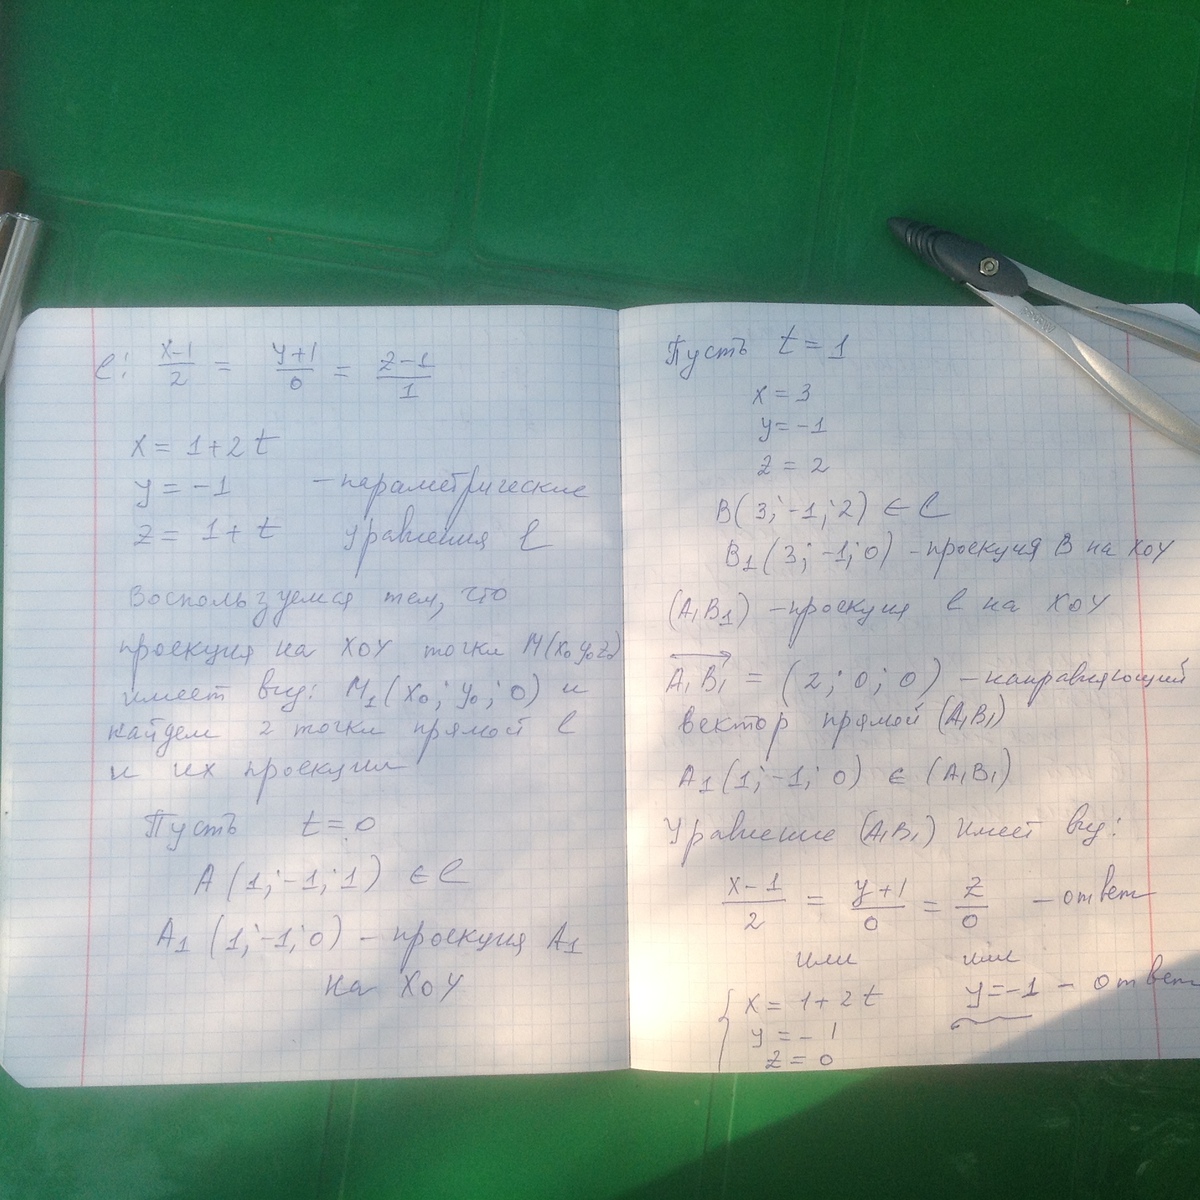 l: (x-1)/2 = (y+1)/0 = (z-1)/1
x = 1+2t
y = -1 - параметрические
z = 1+t уравнения l
Воспользуемся тем, что
проекция на XOY точки M(x₀y₀z₀)
имеет вид: M₁(x₀; y₀; 0) и
найдем 2 точки прямой l
и их проекции
Пусть t = 0
A(1;-1;1) ∈ l
A₁ (1;-1;0) - проекция A₁
на XOY
Пусть t = 1
x = 3
y = -1
z = 2
B(3;-1;2) ∈ l
B₁(3;-1;0) - проекция B на XOY
(A₁B₁) - проекция l на XOY
A₁B₁ = (2; 0; 0) - направляющий
вектор прямой (A₁B₁)
A₁(1;-1; 0) ∈ (A₁B₁)
Уравнение (A₁B₁) имеет вид:
(x-1)/2 = (y+1)/0 = z/0 - ответ
или или
x = 1+2t y=-1 - ответ
y = -1
z = 0